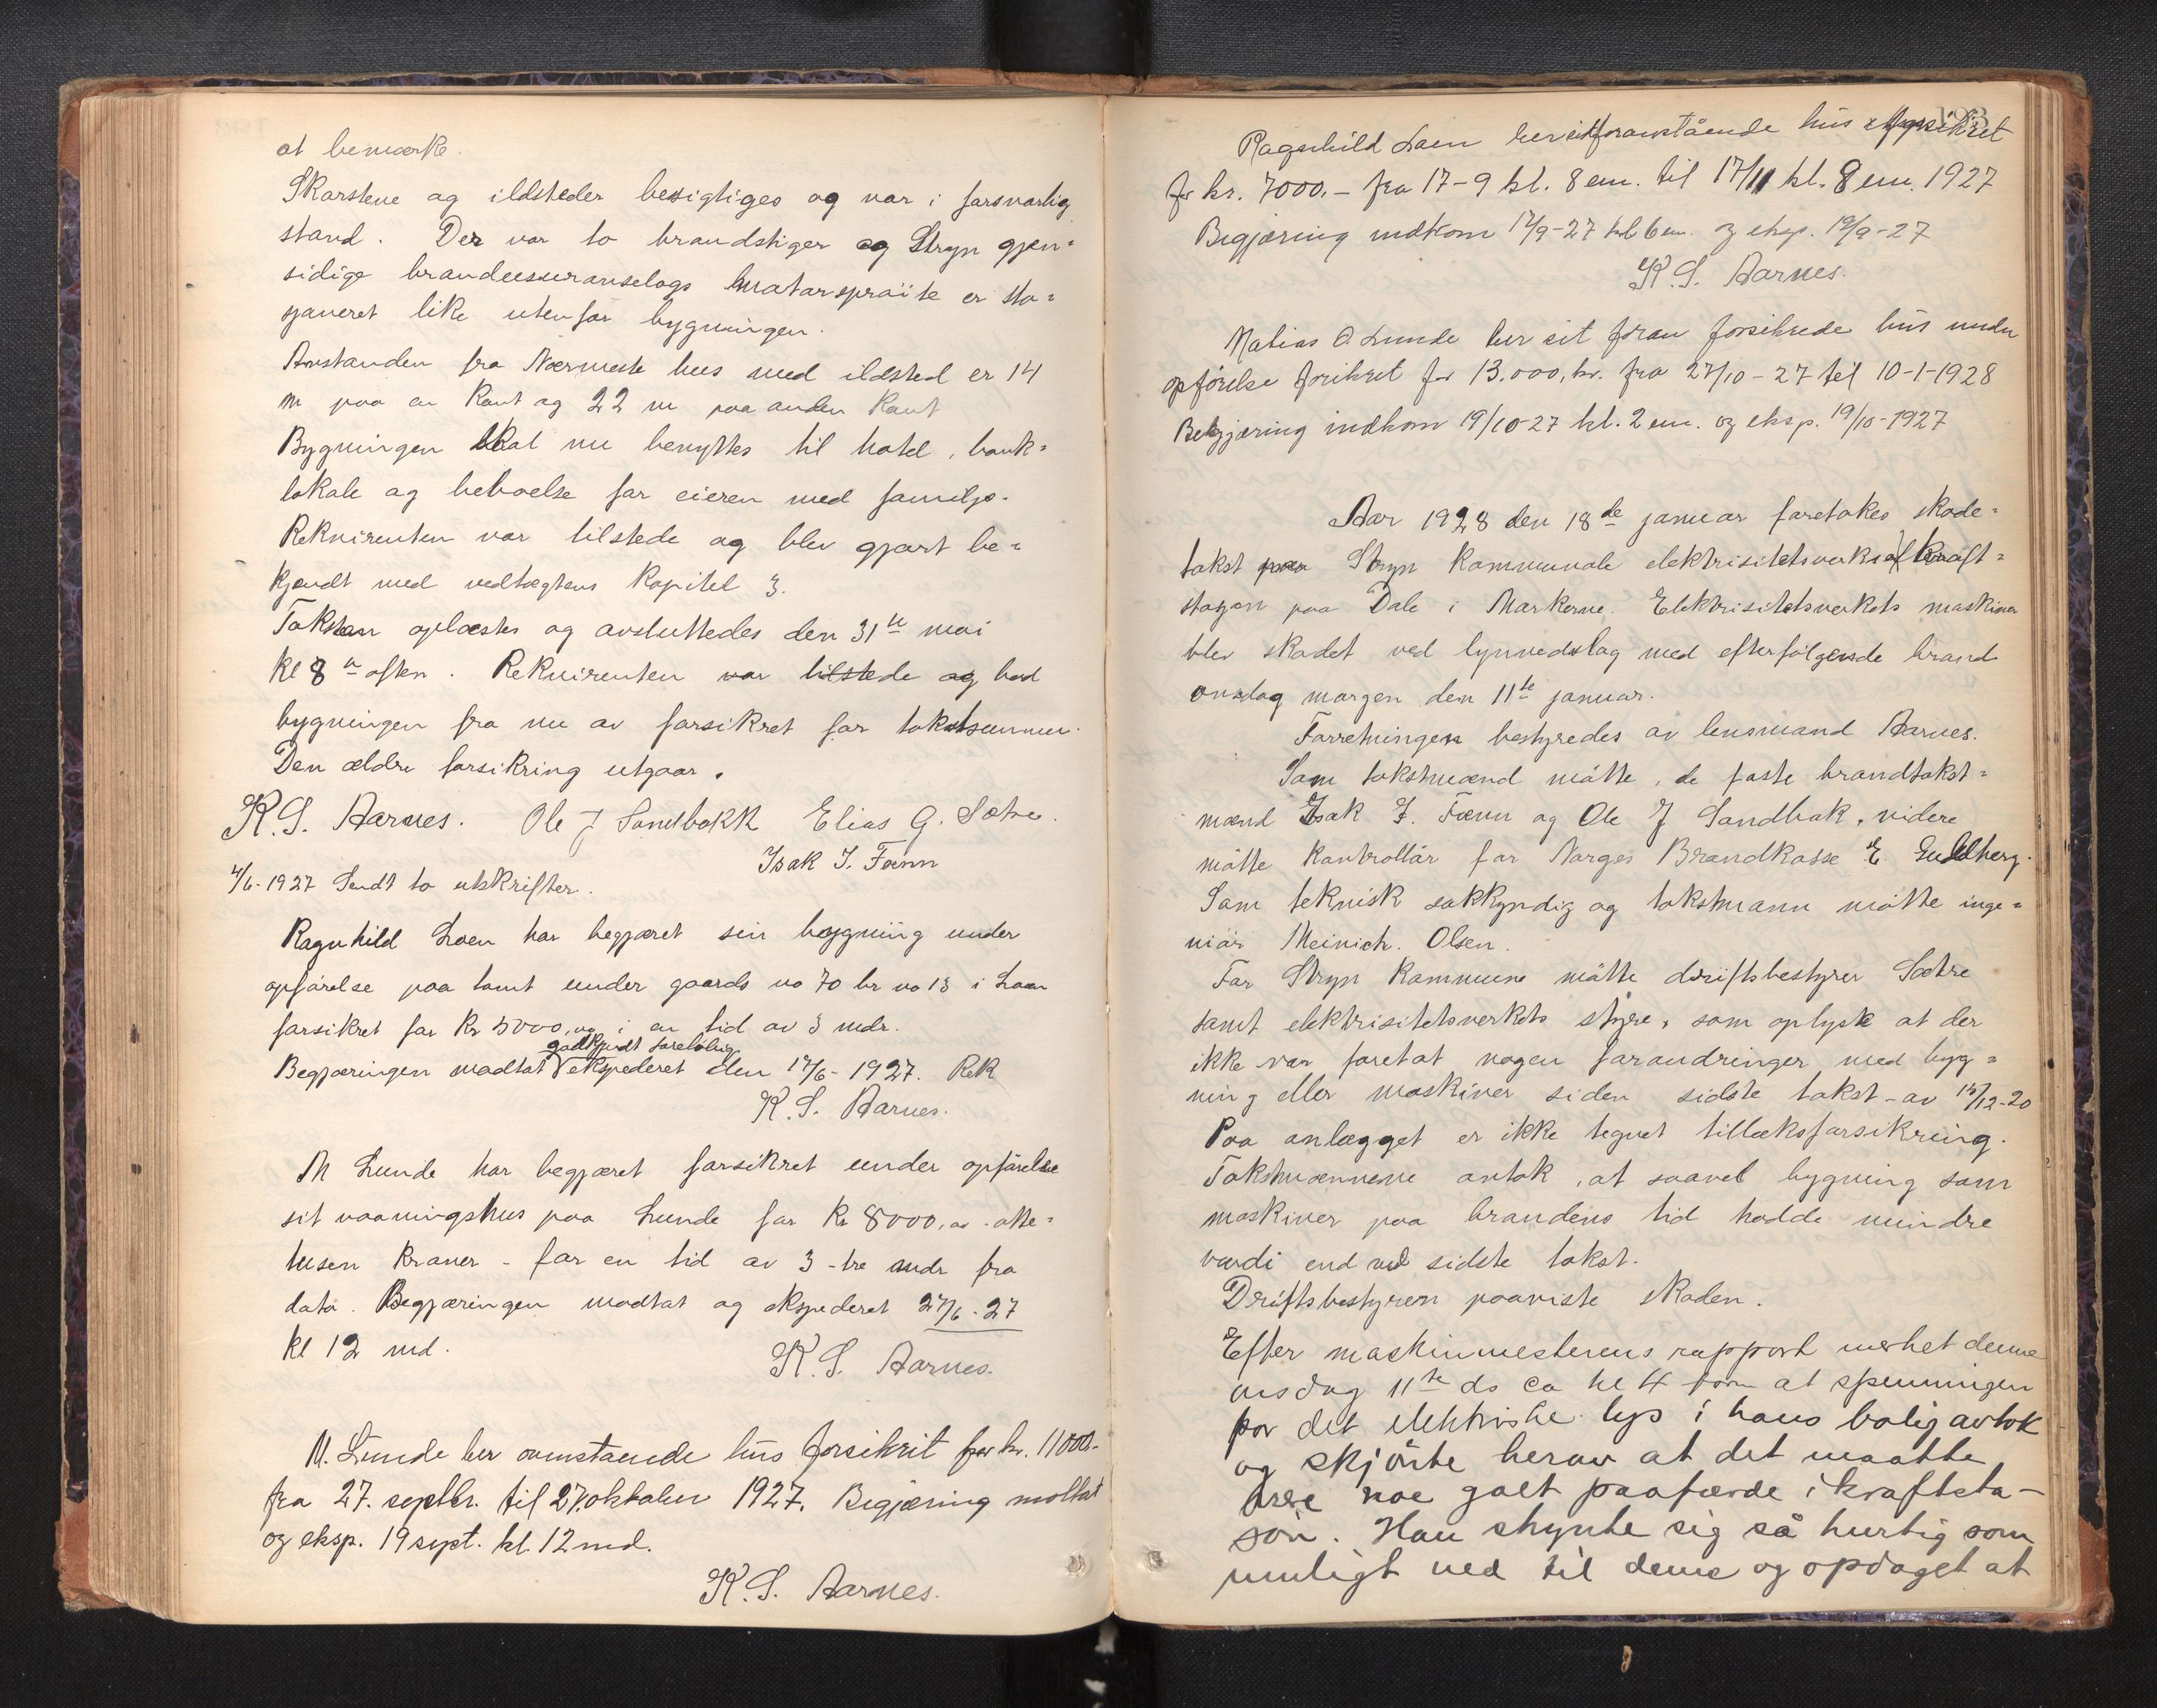 at bemærke.
Skorstene og ildsteder besigtiges og var i forsvarlig
stand. Der var to brandstiger og Stryn gjen-
sidige brandassuranselags motorsprøite er sta-
sjoneret like utenfor bygningen.
Avstanden fra Nærmeste hus med ildsted er 14
m paa en kant og 22 m paa anden kant
Bygningen skal nu benyttes til hotel, bank-
lokale og beboelse for eieren med familje.
Rekvirenten var tilstede og blev gjort be-
kjendt med vedtægtens kapitel 3.
Taksten oplæstes og avsluttedes den 31te mai
kl 8 aften. Rekvirenten var tilstede og bad
bygningen fra nu av forsikret for takstsummen.
Den ældre forsikring utgaar.
K. S. Aarnes. Ole J Sandbakk Elias G. Sætre.
Isak I. Fænn
4/6-1927 Sendt to utskrifter.
Ragnhild Loen har begjæret sin bygning under
opførelse paa tomt under gaards no 70 br no 13 i Loen
forsikret for kr 5000,00 i en tid av 3 mdr.
godkjendt foreløbig
Begjæringen modtat ekspederet den 17/6-1927. Rek
K. S. Aarnes.
M Lunde har begjæret forsikret under opførelse
sit vaaningshus paa Lunde for kr 8000,00 - otte-
tusen kroner - for en tid av 3 - tre mdr fra
dato. Begjæringen modtat og ekspederet 27/6-27
kl 12 md.
K. S. Aarnes.
M. Lunde ber ovenstaaende hus forsikrit for kr. 11000.-
fra 27. septbr. til 27. oktober 1927. Begjæring mottat
og eksp. 19 sept. kl. 12 md.
K. S. Aarnes.
Ragnhild Loen ber sit foranstående hus
for kr. 7000.- fra 17-9 kl. 8 em. til 17/11 kl. 8 em. 1927
Begjæring indkom 17/9-27 kl 6 em. og eksp. 19/9-27
K. S. Aarnes.
Matias O. Lunde ber sit foran forsikrede hus under
opførelse forsikret for 13.000, kr. fra 27/10-27 til 10-1-1928
Begjæring indkom 19/10-27 kl. 2 em. og eksp. 19/10-1927
Aar 1928 den 18de januar foretokes skade-
takst paa Stryn kommunale elektrisitetsverks kraft-
stasjon paa Dale i Markerne. Elektrisitetsverkets maskiner
blev skadet ved lynnedslag med efterfølgende brand
onsdag morgen den 11te januar.
Forretningen bestyredes av lensmand Aarnes.
Som takstmænd møtte, de faste brandtakst-
mænd Isak I. Fænn og Ole J Sandbak, videre
møtte kontrollør for Norges Brandkasse E Guldberg.
Som teknisk sakkyndig og takstmann møtte inge-
niør Meinich. Olsen.
For Stryn kommune møtte driftsbestyrer Sætre
samt elektrisitetsverkets styre, som oplyste at der
ikke var foretat nogen forandringer med byg-
ning eller maskiner siden sidste takst - av 14/12-20
Paa anlægget er ikke tegnet tillæksforsikring.
Takstmennene antok, at saavel bygning som
maskiner paa brandens tid hadde mindre
værdi end ved sidste takst.
Driftsbestyreren paaviste skaden.
Efter maskinmesterens rapport merket denne
onsdag 11te ds ca kl 4 form at spenningen
for det elektriske lys i hans bolig avtok
og skjønte herav at det maatte
være noe galt paafærde i kraftsta-
sjon. Han skynte sig så hurtig som
muligt ned til denne og opdaget at